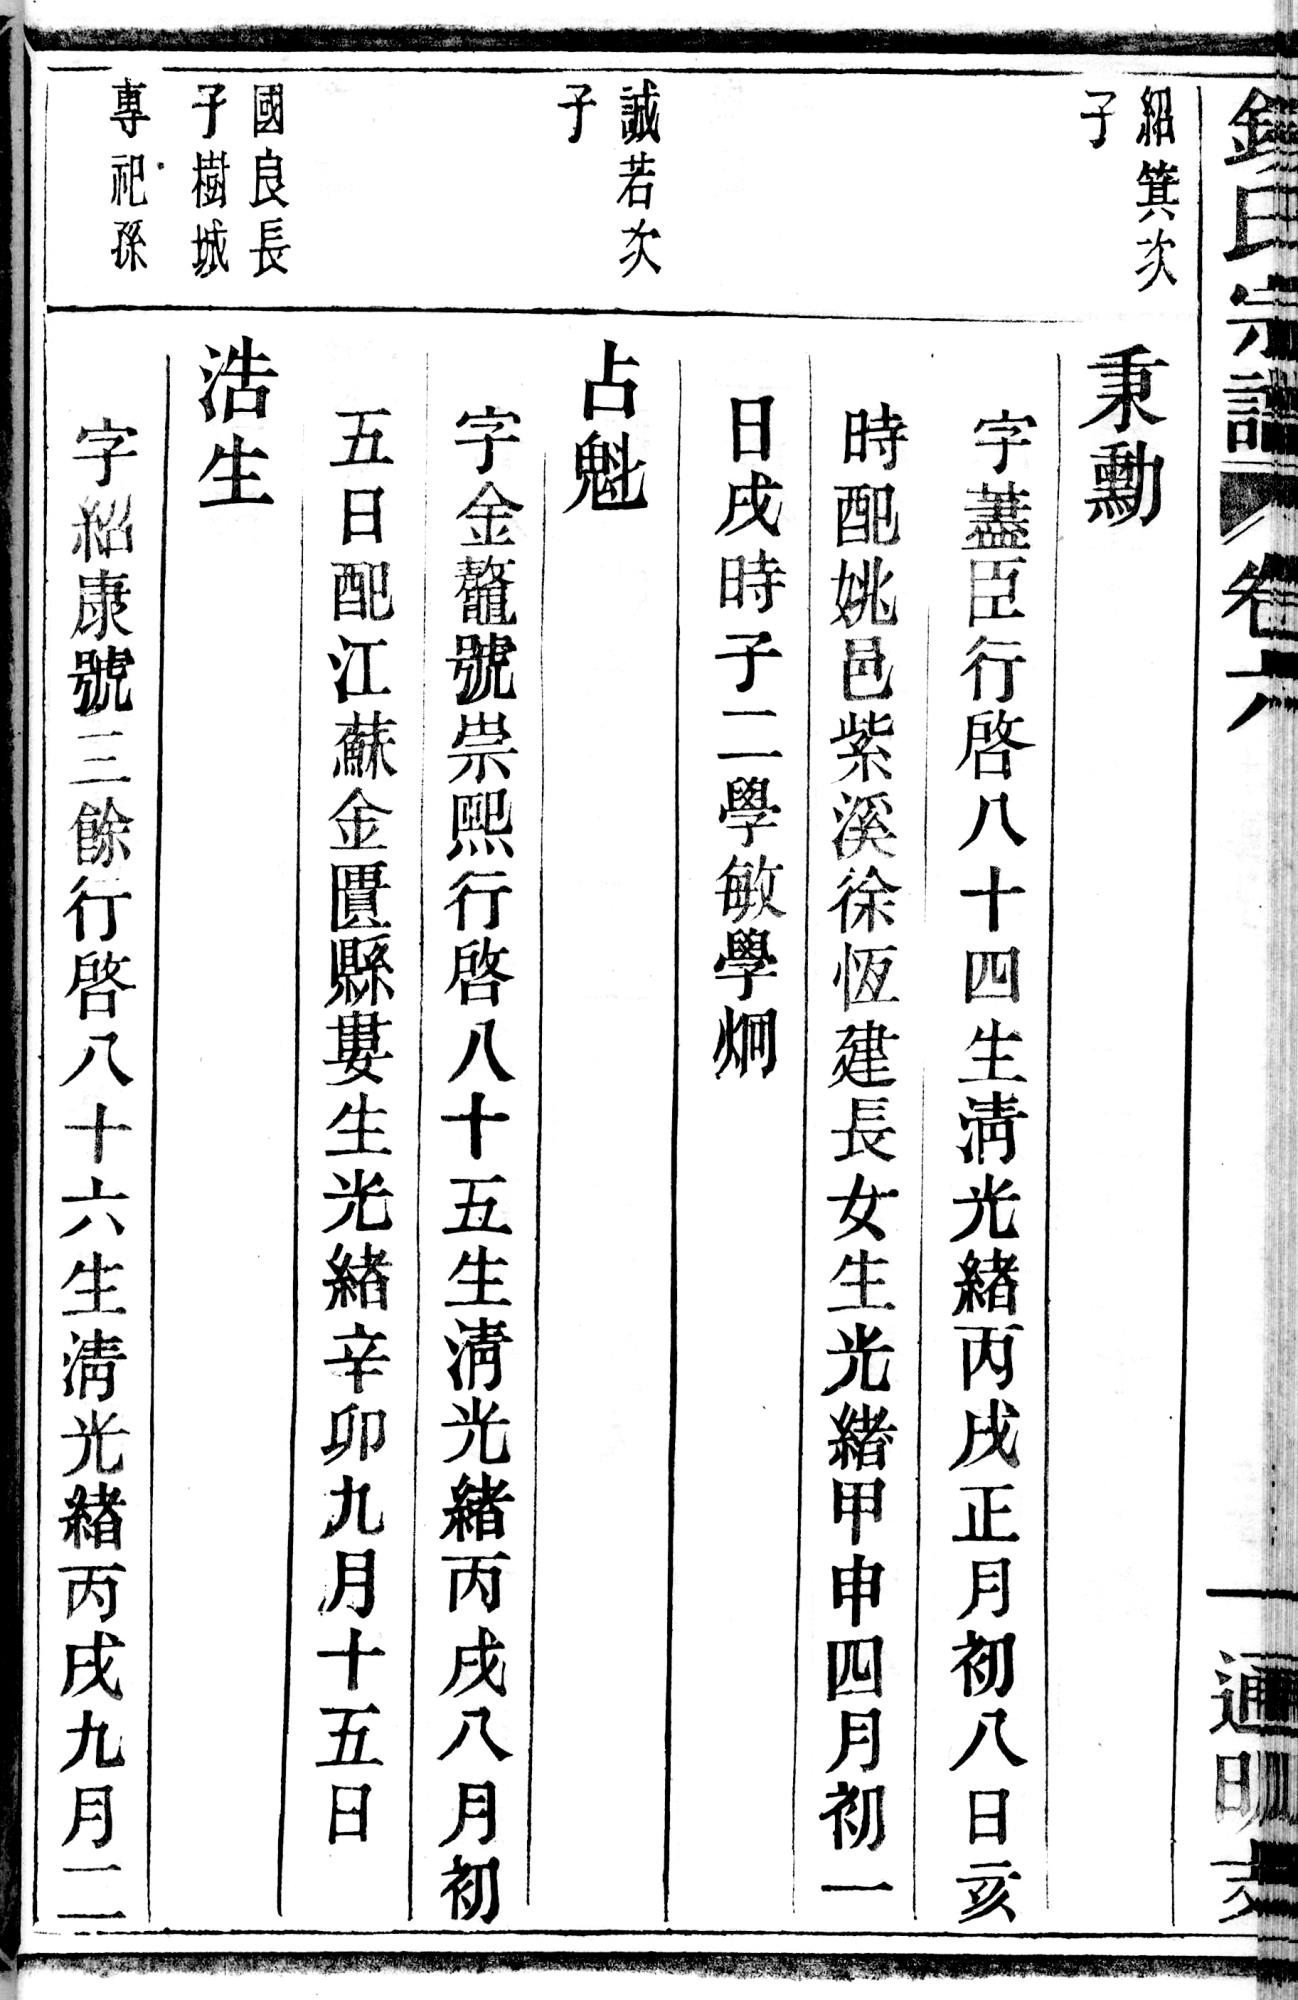 錢氏宗譜 卷六 通明支
紹箕次
子
秉勳
字藎臣行啓八十四生清光緒丙戌正月初八日亥
時配姚邑紫溪徐恆建長女生光緒甲申四月初一
日戌時子二學敏學炯
誠若次
子
占魁
字金鼇號崇熙行啓八十五生清光緒丙戌八月初
五日配江蘇金匱縣婁生光緒辛卯九月十五日
國良長
子樹城
專祀孫
浩生
字紹康號三餘行啓八十六生清光緒丙戌九月二